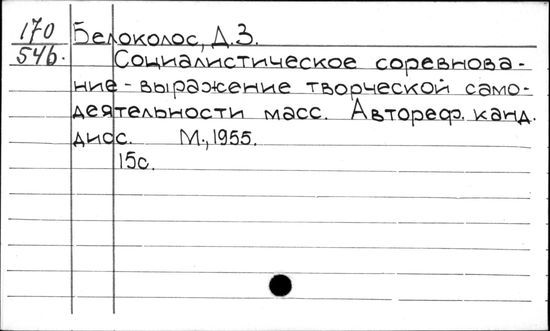 170 Белоколос, Д.З.
546. Социалистическое соревнова-
ние - выражение творческой само-
деятельности масс. Автореф. канд.
дисс. М., 1955.
15с.